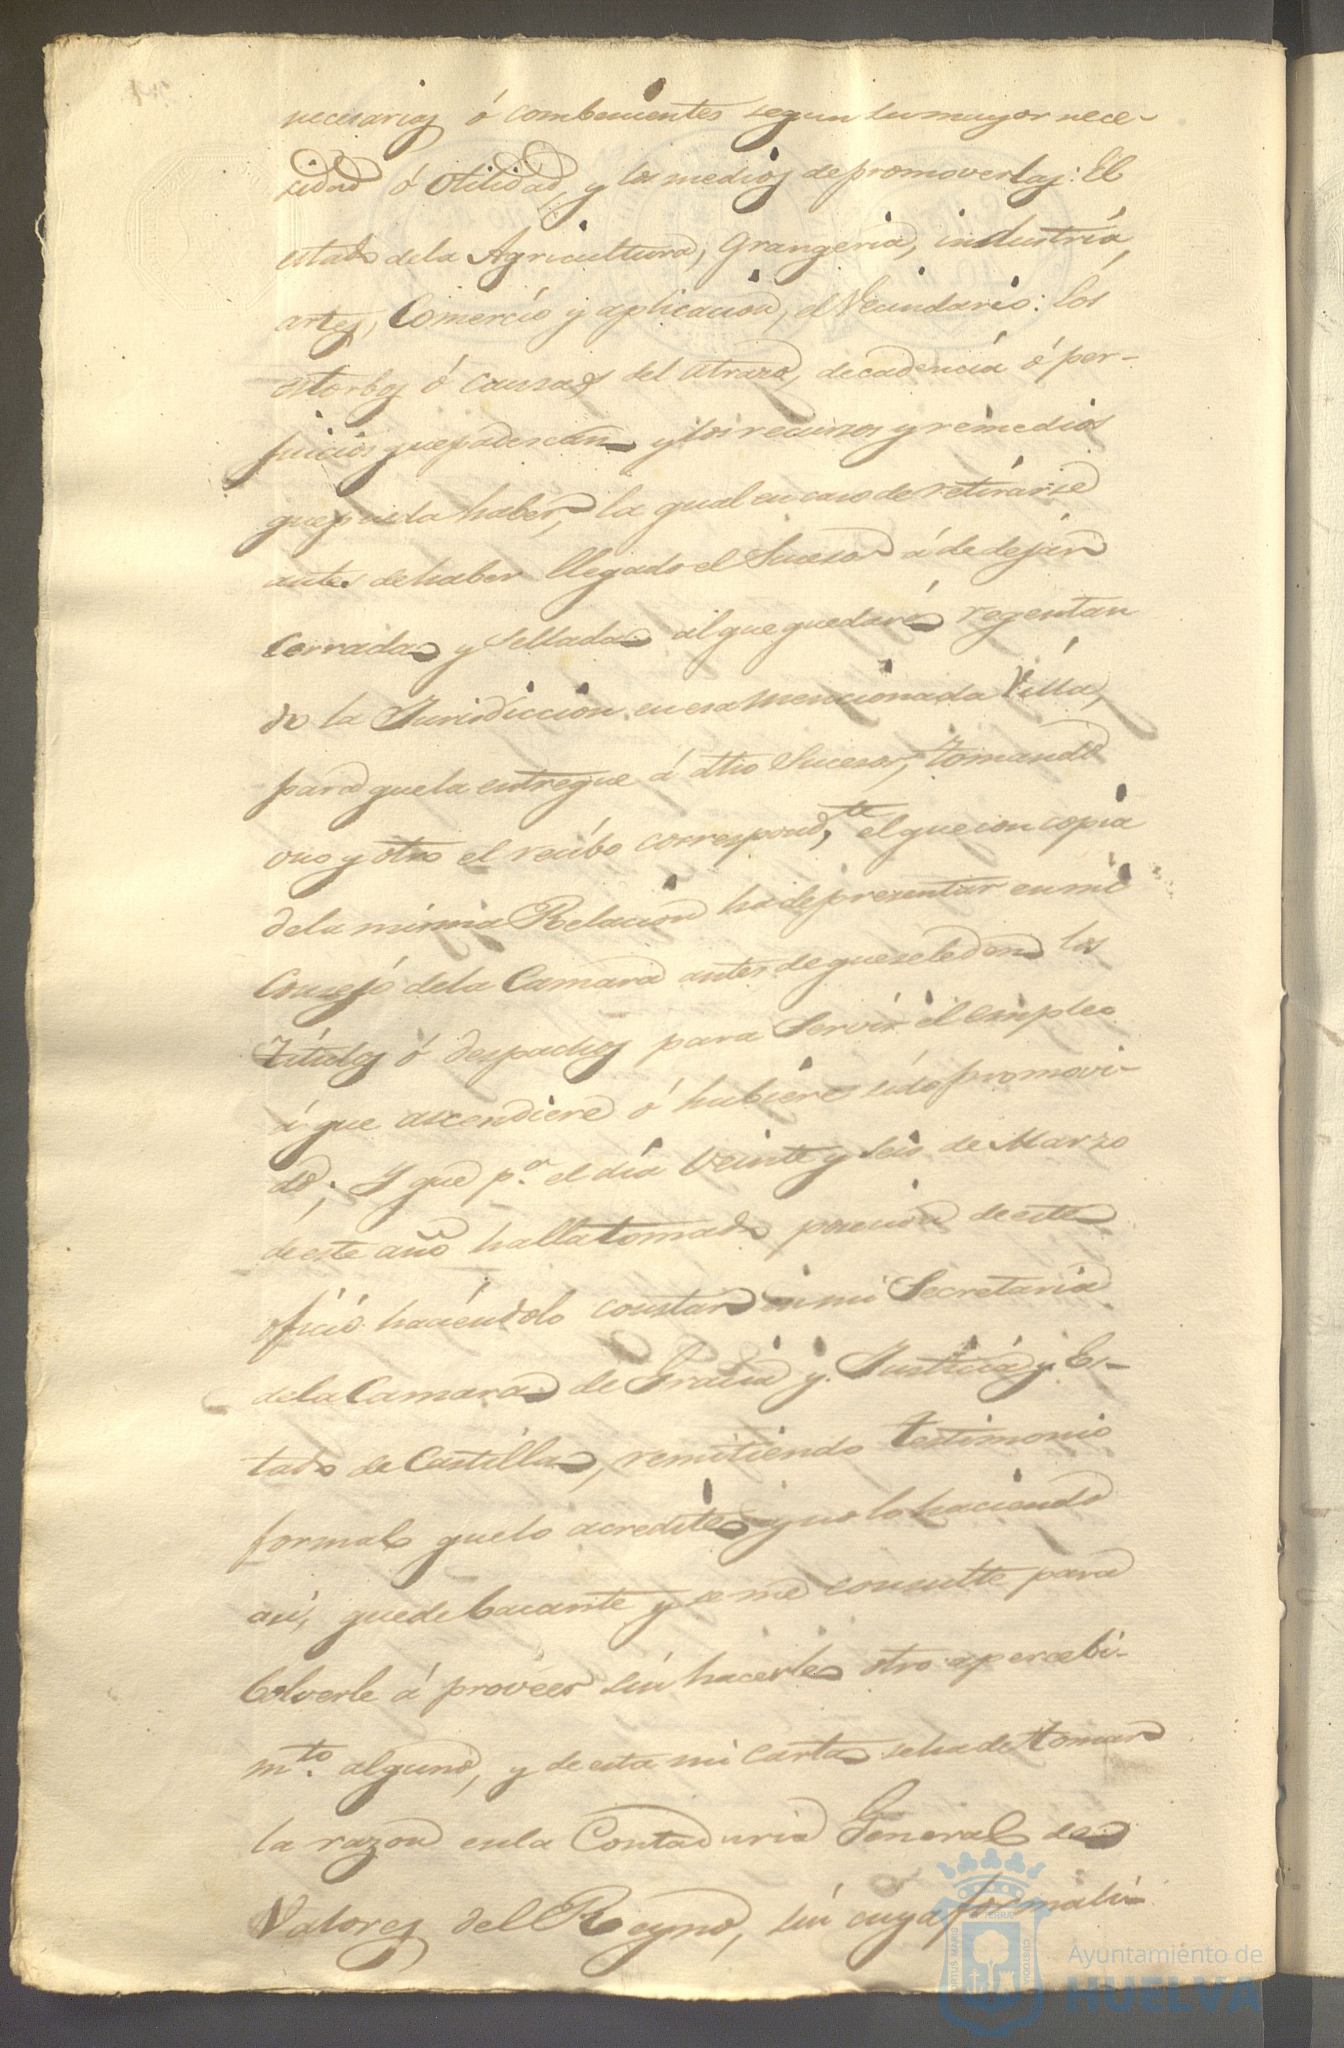 necesarias ó combenientes segun su mayor nece-
sidad ó Utilidad, y los medios de promoverlas: El
estado dela Agricultura, Grangeria, industria,
artes, Comercio y aplicacion, del Vecindario: Los
estorbos ó causas del atrazo, decadencia ó per-
juicios que padescan y los recursos y remedios
que pueda haber, la qual en caso de retirarse
antes de haber llegado el Sucesor á de dejar
Cerrada y Sellada al que quedare regentan
do la Jurisdiccion en esa mencionada Villa,
para que la entregue á dho Sucesor, tomando
uno y otro el recibo correspond,te el que con copia
dela misma Relacion ha de presentar en mi
Consejo dela Camara antes de que se le den los
Titulos ó despachos para Servir el empleo
á que ascendiere ó hubiere sido promovi-
do; Y que p.a el dia Veinte y Seis de Marzo
de este año halla tomado posecion de este
oficio haciendolo constar en mi Secretaria
dela Camara de Gracia y Justicia y Es-
tado de Castilla, remitiendo testimonio
formal que lo acredite y no lo haciendo
asi, quede bacante y se me consulte para
bolverle á proveer sin hacerle otro apercebi-
m.to alguno, y de esta mi Carta se ha de tomar
la razon en la Contaduria General de
Valores del Reyno, sin cuya formali-
PORTUS MARIS
TERRE
CUSTODIA
Ayuntamiento de
HUELVA